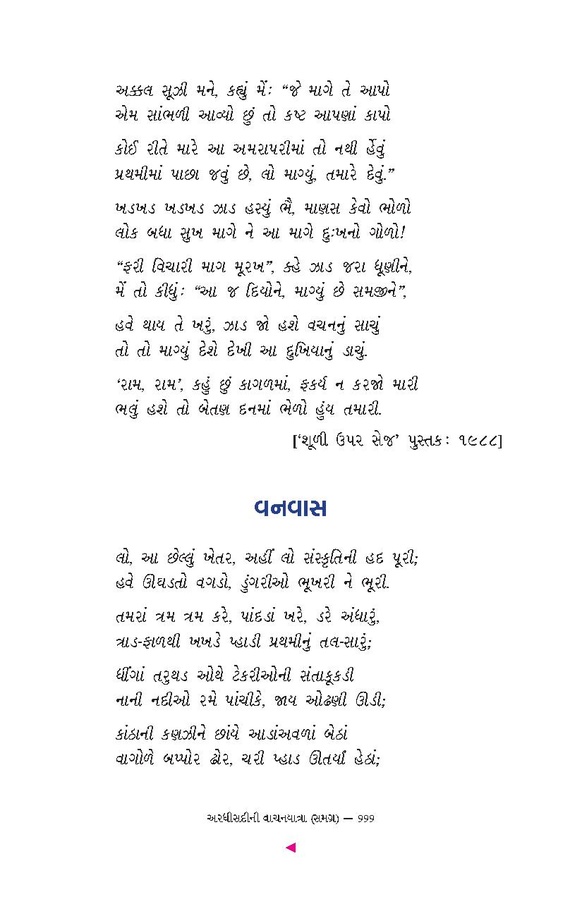 અક્કલ સૂઝી મને, કહ્યું મેં: “જે માગે તે આપો
એમ સાંભળી આવ્યો છું તો કષ્ટ આપણાં કાપો
કોઈ રીતે મારે આ અમરાપરીમાં તો નથી ર્હેવું
પ્રથમીમાં પાછા જવું છે, લો માગ્યું, તમારે દેવું.”
ખડખડ ખડખડ ઝાડ હસ્યું ભૈ, માણસ કેવો ભોળો
લોક બધા સુખ માગે ને આ માગે દુઃખનો ગોળો!
“ફરી વિચારી માગ મૂરખ”, ક્હે ઝાડ જરા ધૂણીને,
મેં તો કીધું: “આ જ દિયોને, માગ્યું છે સમજીને”,
હવે થાય તે ખરું, ઝાડ જો હશે વચનનું સાચું
તો તો માગ્યું દેશે દેખી આ દુખિયાનું ડાચું.
‘રામ, રામ’, કહું છું કાગળમાં, ફકર્ય ન કરજો મારી
ભલું હશે તો બેતણ દનમાં ભેળો હુંય તમારી.
[‘શૂળી ઉપર સેજ’ પુસ્તક: ૧૯૮૮]
વનવાસ
લો, આ છેલ્લું ખેતર, અહીં લો સંસ્કૃતિની હદ પૂરી;
હવે ઊઘડતો વગડો, ડુંગરીઓ ભૂખરી ને ભૂરી.
તમરાં ત્રમ ત્રમ કરે, પાંદડાં ખરે, ડરે અંધારું,
ત્રાડ-ફાળથી ખખડે પ્હાડી પ્રથમીનું તલ-સારું;
ધીંગાં તરુથડ ઓથે ટેકરીઓની સંતાકૂકડી
નાની નદીઓ રમે પાંચીકે, જાય ઓઢણી ઊડી;
કાંઠાની કણઝીને છાંયે આડાંઅવળાં બેઠાં
વાગોળે બપ્પોર ઢોર, ચરી પ્હાડ ઊતર્યાં હેઠાં;
અરધીસદીની વાચનયાત્રા (સમગ્ર) — 999